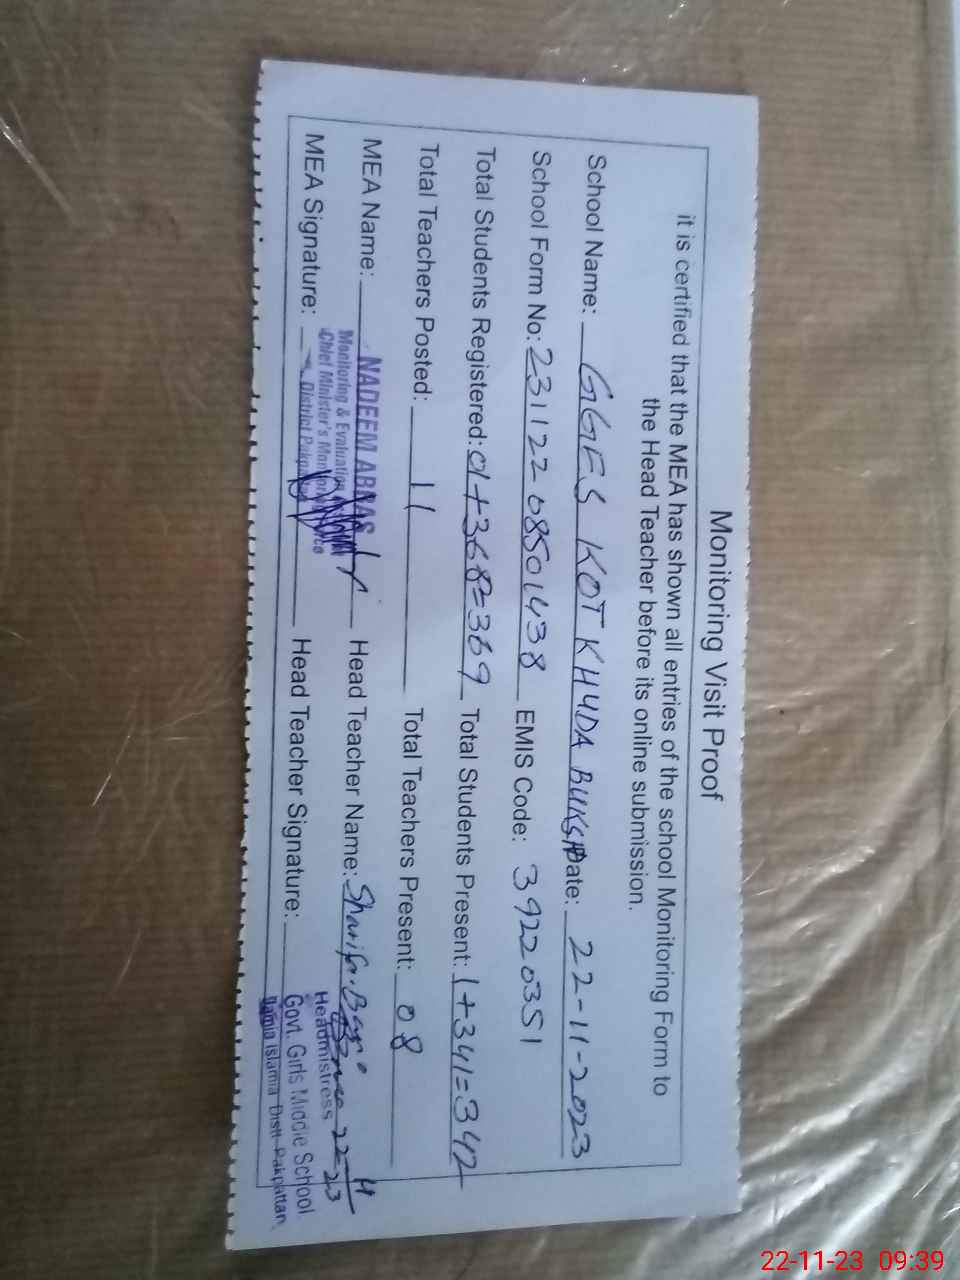 Monitoring Visit Proof
it is certified that the MEA has shown all entries of the school Monitoring Form to
the Head Teacher before its online submission.
School Name: GGES KOT KHUDA BUKSH Date: 22-11-2023
School Form No: 231122 08501438 EMIS Code: 39220351
Total Students Registered: 01+368=369 Total Students Present: 1+341=342
Total Teachers Posted: 11 Total Teachers Present: 08
MEA Name: NADEEM ABBAS Head Teacher Name: Sharifa
Monitoring & Evaluation
Chief Minister's Monitoring
District Pakpattan
MEA Signature: Head Teacher Signature:
Headmistress
Govt. Girls Middle School
Islamia Distt Pakpattan
22-11-23 09:39